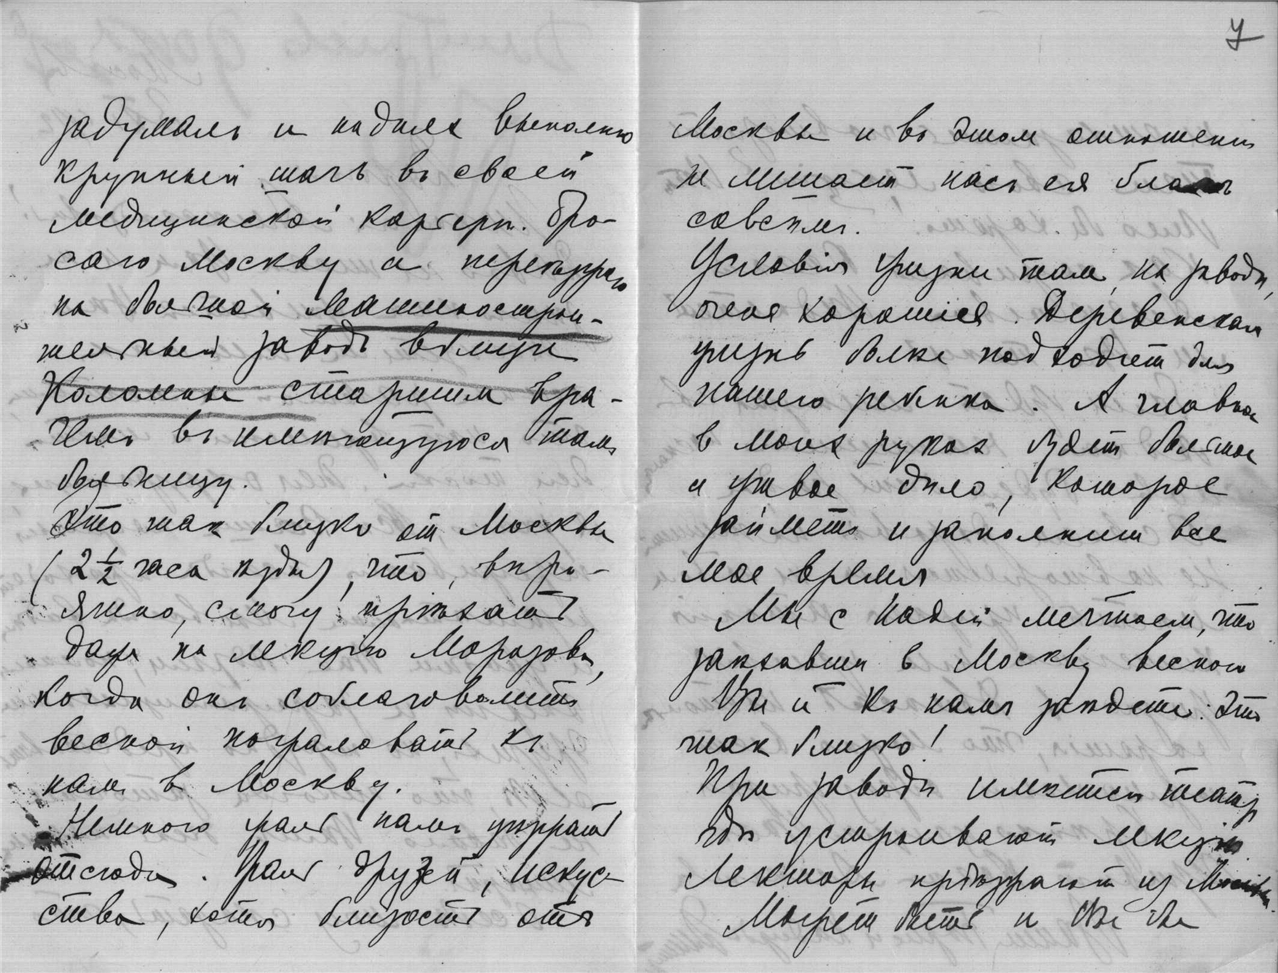 задумалъ и надняхъ выполняю
крупный шагъ въ своей
медицинской карьерѣ. Бро-
саю Москву и переѣзжаю
на большой машинострои-
тельный заводъ вблизи
Коломны старшимъ вра-
чемъ въ имѣющуюся тамъ
больницу.
Это такъ близко отъ Москвы
(2½ часа ѣзды), что, вѣро-
ятно, смогу пріѣхать
даже на лекцію Морозова,
когда онъ соблаговолитъ
весной пожаловать къ
намъ въ Москву.
Немного жаль намъ уѣзжать
отсюда. Жаль друзей, искус-
ства, хотя близость отъ
7
Москвы и въ этомъ отношеніи
не лишаетъ насъ ея благъ
совсѣмъ.
Условія жизни тамъ, на заводѣ,
очень хорошія. Деревенская
жизнь болѣе подходитъ для
нашего ребенка. А главное
въ моихъ рукахъ будетъ большое
и живое дѣло, которое
займетъ и заполнитъ все
мое время
Мы с Надей мечтаем, что
заѣхавши в Москву весною
Вы и къ намъ заѣдете: Это
такъ близко!
При заводѣ имѣется театръ
гдѣ устраиваютъ лекціи
Лекторы пріѣзжаютъ из Москвы.
Можетъ быть и Вы бы